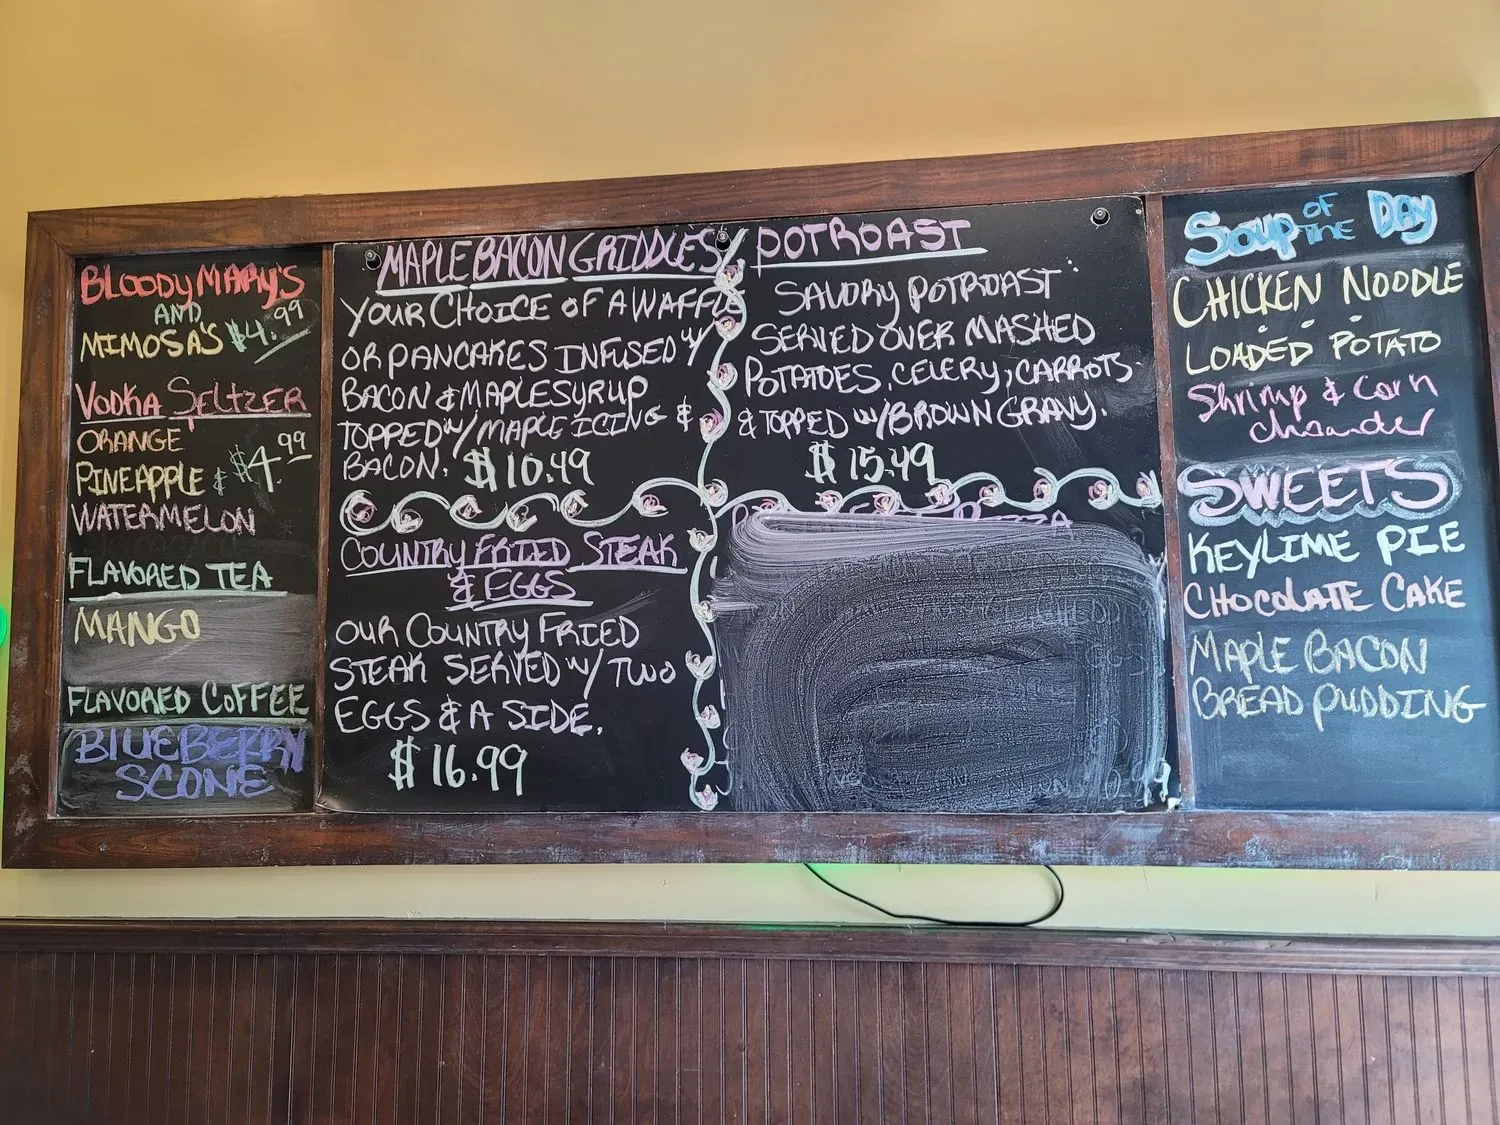 BLOODY MARY'S
AND
MIMOSA'S $4.99
VODKA SELTZER
ORANGE
PINEAPPLE & $4.99
WATERMELON
FLAVORED TEA
MANGO
FLAVORED COFFEE
BLUEBERRY
SCONE
MAPLE BACON GRIDDLES
YOUR CHOICE OF A WAFFLE
OR PANCAKES INFUSED W/
BACON & MAPLE SYRUP
TOPPED W/ MAPLE ICING &
BACON. $10.49
COUNTRY FRIED STEAK
& EGGS
OUR COUNTRY FRIED
STEAK SERVED W/ TWO
EGGS & A SIDE.
$16.99
POTROAST
SAVORY POTROAST
SERVED OVER MASHED
POTATOES, CELERY, CARROTS
& TOPPED W/ BROWN GRAVY.
$15.49
SOUP OF THE DAY
CHICKEN NOODLE
LOADED POTATO
Shrimp & Corn
chowder
SWEETS
KEYLIME PIE
CHOCOLATE CAKE
MAPLE BACON
BREAD PUDDING